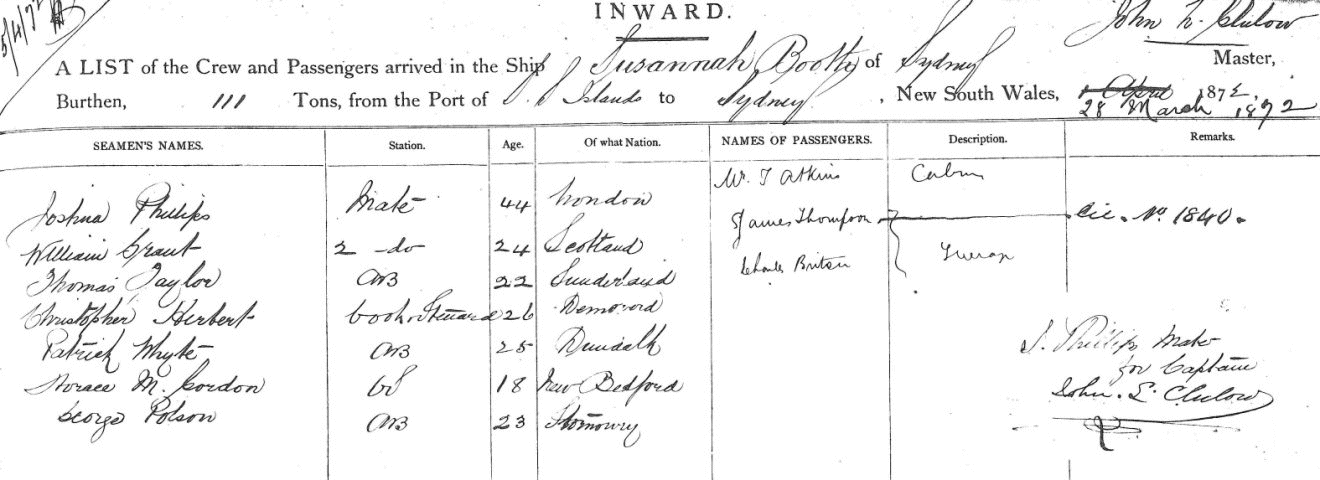 5/4/72
INWARD.
John L. Clulow
A LIST of the Crew and Passengers arrived in the Ship Susannah Booth of Sydney Master,
Burthen, 111 Tons, from the Port of S. S Islands to Sydney, New South Wales, 1 April 1872,
28 March 1872
SEAMEN'S NAMES. Station. Age. Of what Nation. NAMES OF PASSENGERS. Description. Remarks.
Mr. T Atkins Cabin
Joshua Phillips Mate 44 London
James Thompson Lic. No. 1840.
William Grant 2 -do 24 Scotland
Charles Briton
Thomas Taylor AB 22 Sunderland
Christopher Herbert Cook & Steward 26
Patrick Whyte AB 25 Dundalk
J. Phillips Mate
for Captain
Horace M. Gordon OS 18 New Bedford
John. L. Clulow
George Polson AB 23